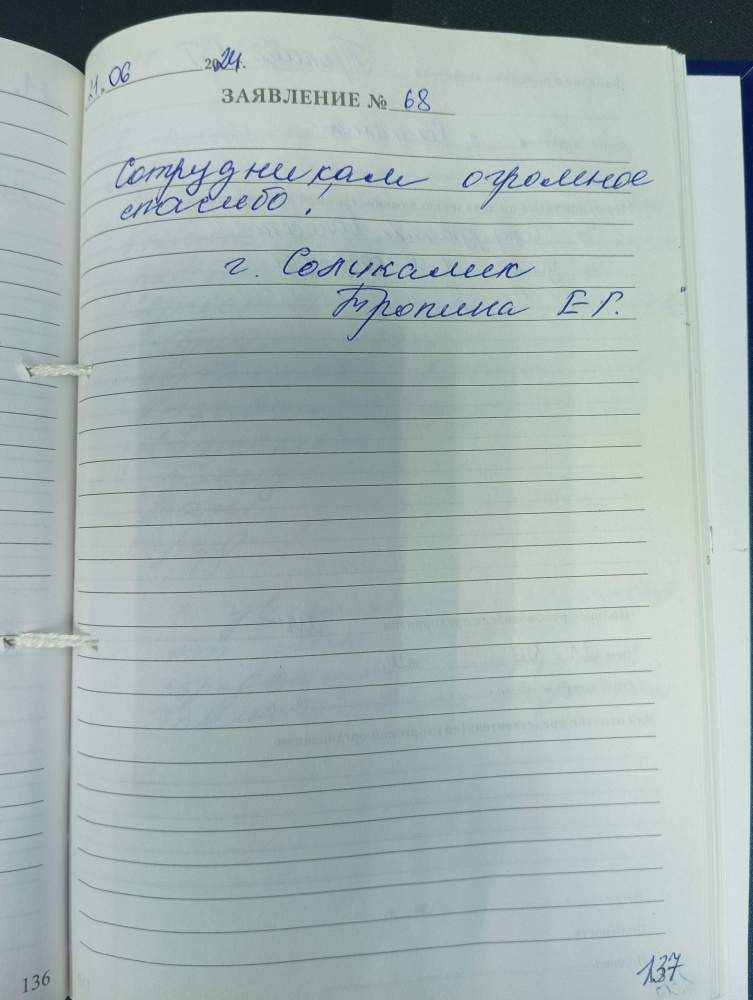 21.06 2024г.
ЗАЯВЛЕНИЕ № 68
Сотрудникам огромное
спасибо!
г. Соликамск
Тропина Е Г.
137
136